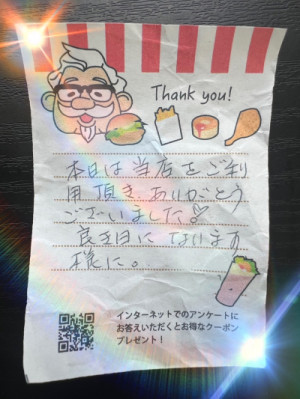 Thank you!
本日は当店をご利
用頂き、ありがとう
ございました♪
良き日になります
様に。
インターネットでのアンケートに
お答えいただくとお得なクーポン
プレゼント!